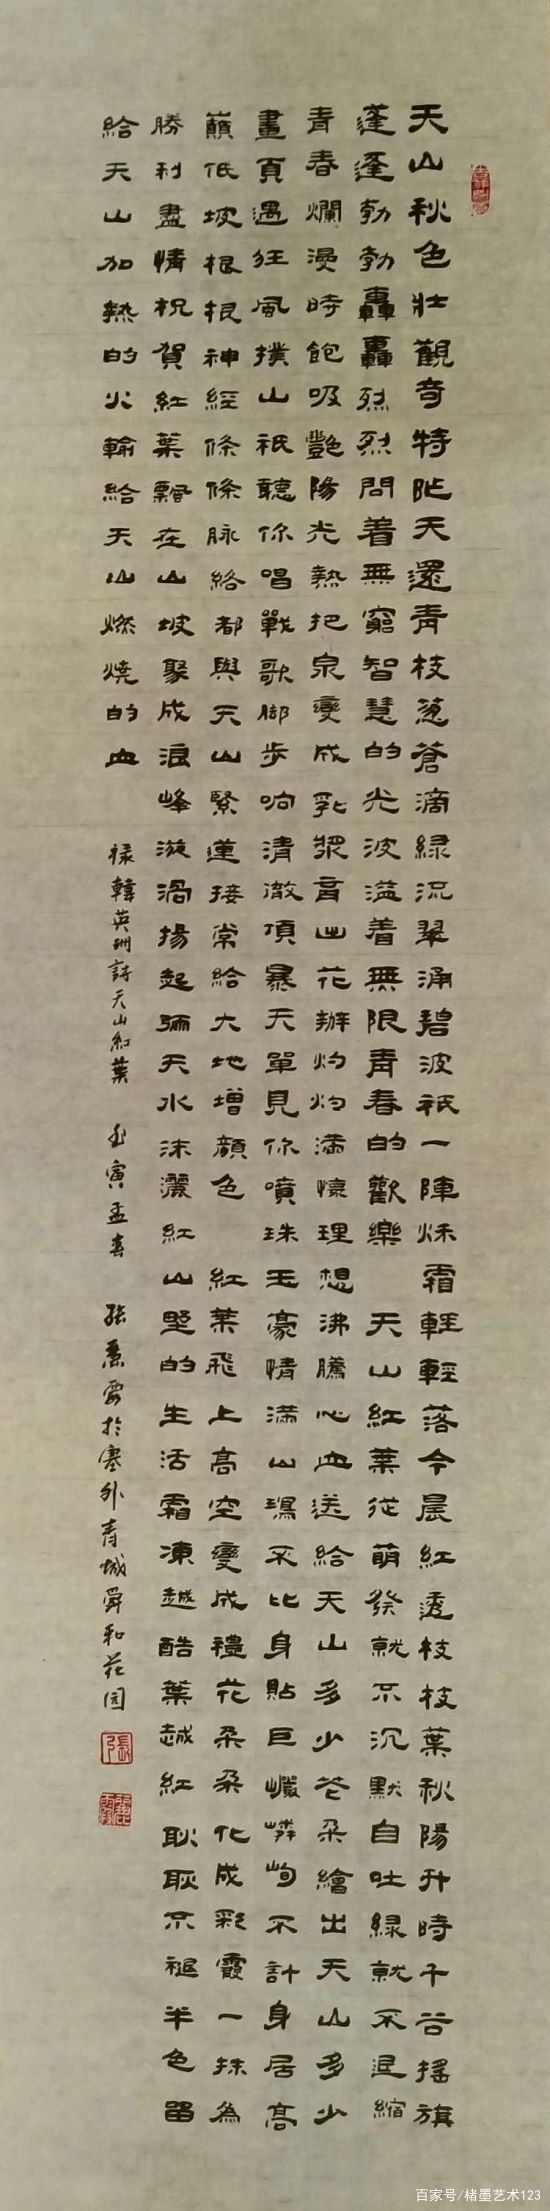 天山秋色壯觀奇特陁天還青枝蔥蒼滴綠流翠涌碧波祇一陣烁霜輕輕落今晨紅透枝枝葉秋陽升時千谷搖旗
蓬蓬勃勃轟轟烈烈問着無窮智慧的光波溢着無限青春的歡樂 天山紅葉從萌發就不沉默自吐綠就不退縮
青春爛漫時飽吸艷陽光熱把泉變成乳漿育出花瓣灼灼满懷理想沸騰心血送給天山多少花朵繪出天山多少
畫頁遇狂風撲山祇聽你唱戰歌腳步响清澈頂暴天單見你噴珠玉豪情满山瀉不比身貼巨巘嶙峋不計身居高
巔低坡根根神經條條脉絡都與天山緊蓮接常給大地增顏色 紅葉飛上高空變成禮花朵朵化成彩霞一抹為
勝利盡情祝賀紅葉飄在山坡聚成浪峰漩渦揚起彌天水沫灑紅山野的生活霜凍越酷葉越紅耿耿不褪半色留
給天山加熱的火輪給天山燃燒的血
祿韓英珊詩天山紅葉 壬寅孟春 張麗霞於塞外青城舜和花园
百家号/楮墨艺术123